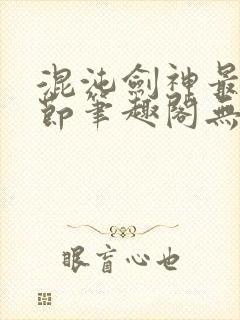 混沌劍神最
節筆趣閣無
眼盲心也